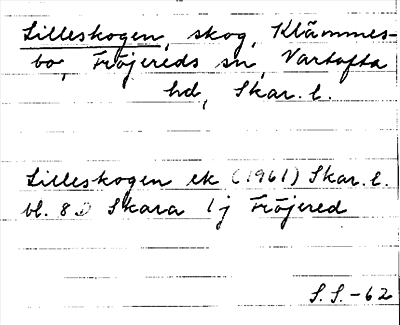 Lilleskogen, skog, Klämmes-
bo, Fröjereds sn, Vartofta
hd, Skar. l.
Lilleskogen ek (1961) Skar. l.
bl. 8D Skara 1j Fröjered
S.S.-62